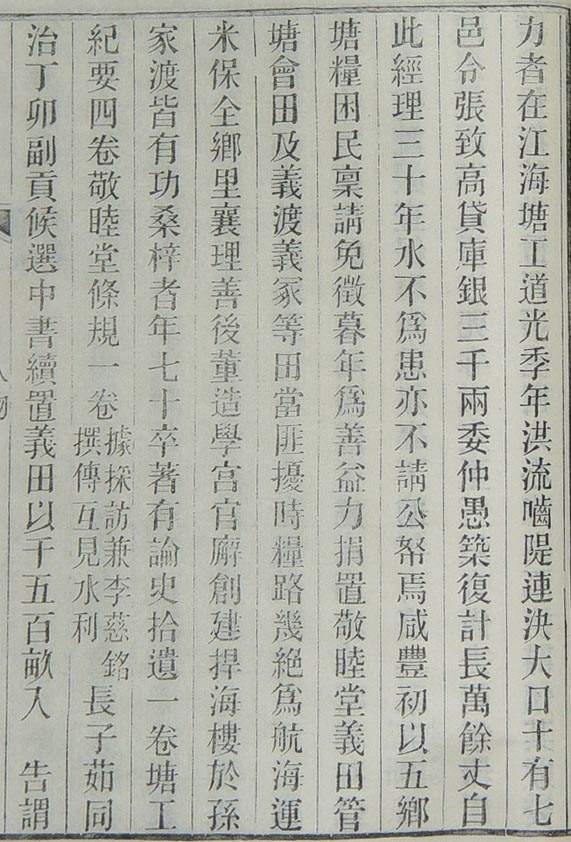 力者在江海塘工道光季年洪流嚙隄連決大口十有七
邑令張致高貸庫銀三千兩委仲愚築復計長萬餘丈自
此經理三十年水不爲患亦不請公帑焉咸豐初以五鄉
塘糧困民稟請免徵暮年爲善益力捐置敬睦堂義田管
塘會田及義渡義冢等田當匪擾時糧路幾絕爲航海運
米保全鄉里襄理善後董造學宮官廨創建捍海樓於孫
家渡皆有功桑梓者年七十卒著有論史拾遺一卷塘工
紀要四卷敬睦堂條規一卷
據採訪兼李慈銘
撰傳互見水利
長子茹同
治丁卯副貢候選中書續置義田以千五百畝入 告謂